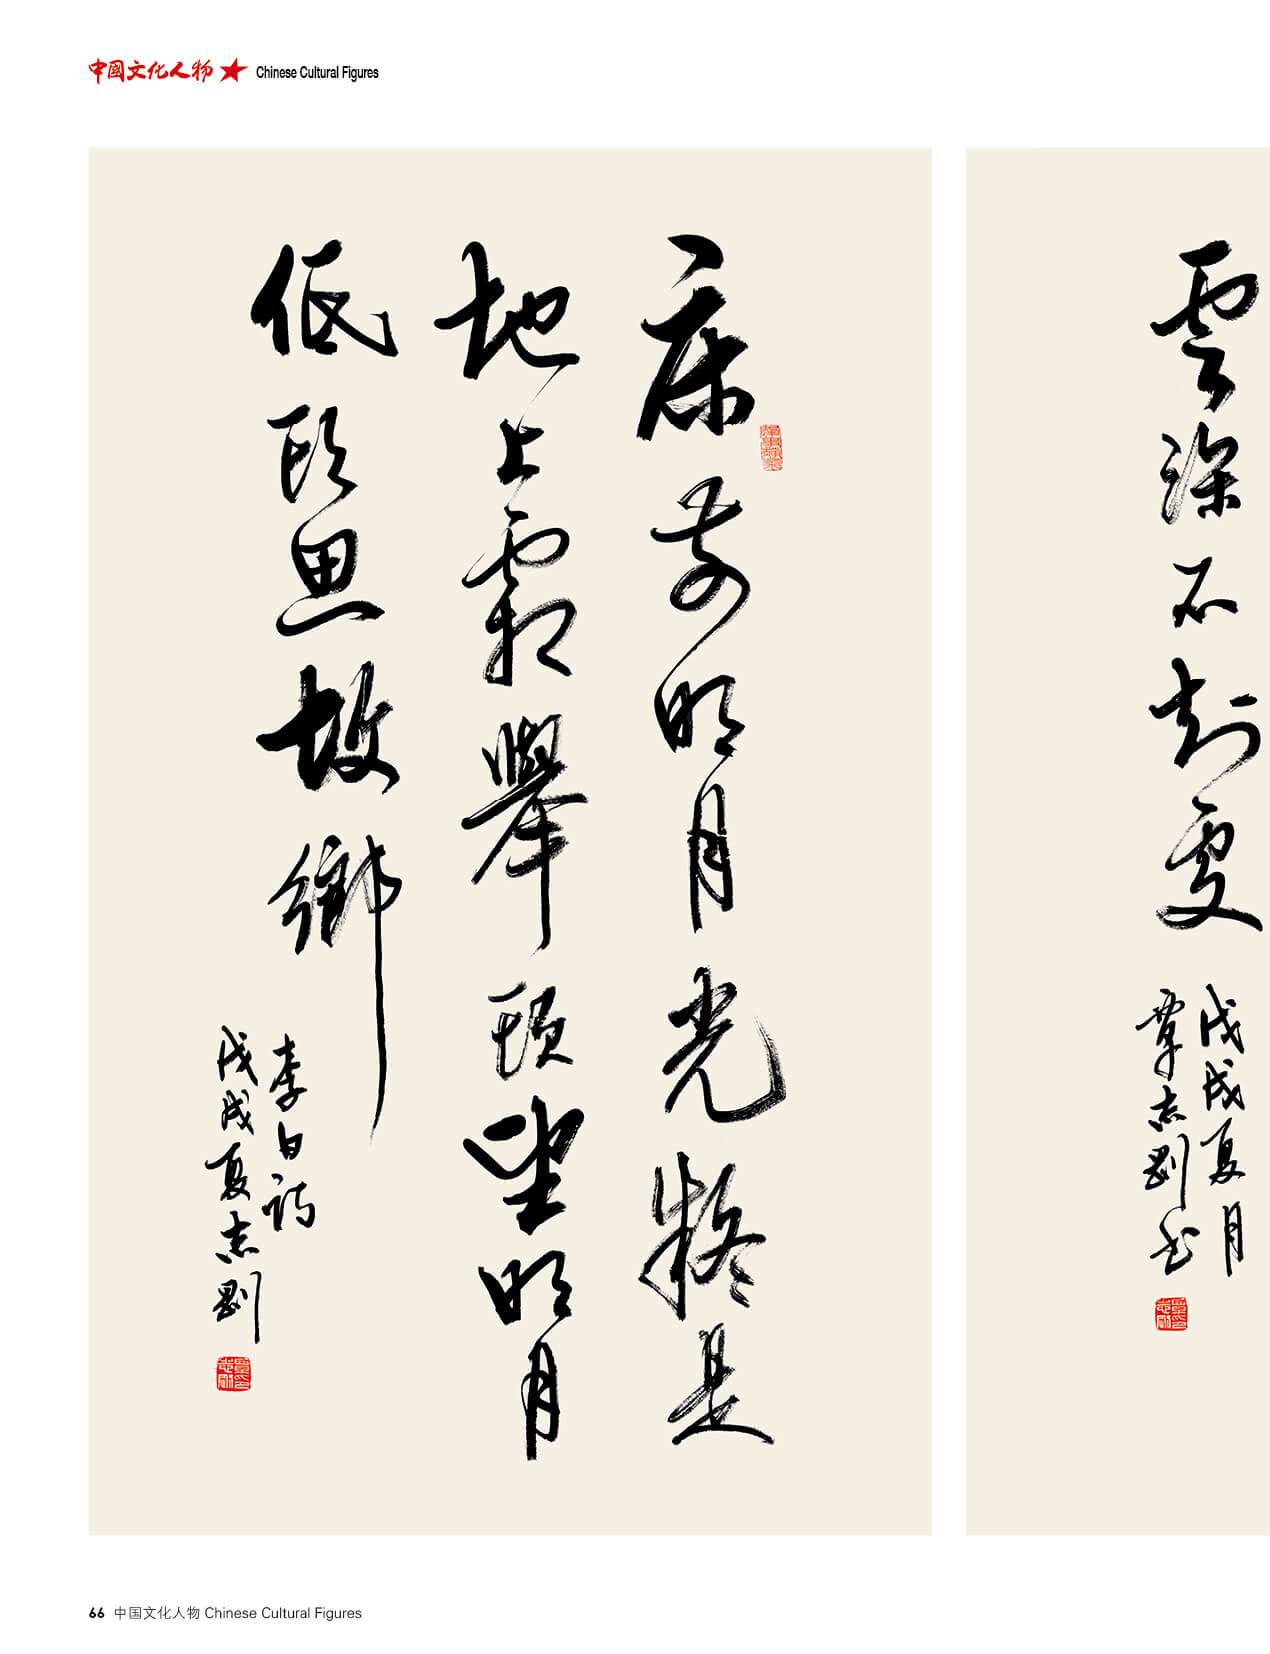 中國文化人物 Chinese Cultural Figures
床前明月光疑是
地上霜舉頭望明月
低頭思故鄉
李白詩
戊戌夏志剛
雲深不知處
戊戌夏月
覃志剛書
66 中国文化人物 Chinese Cultural Figures